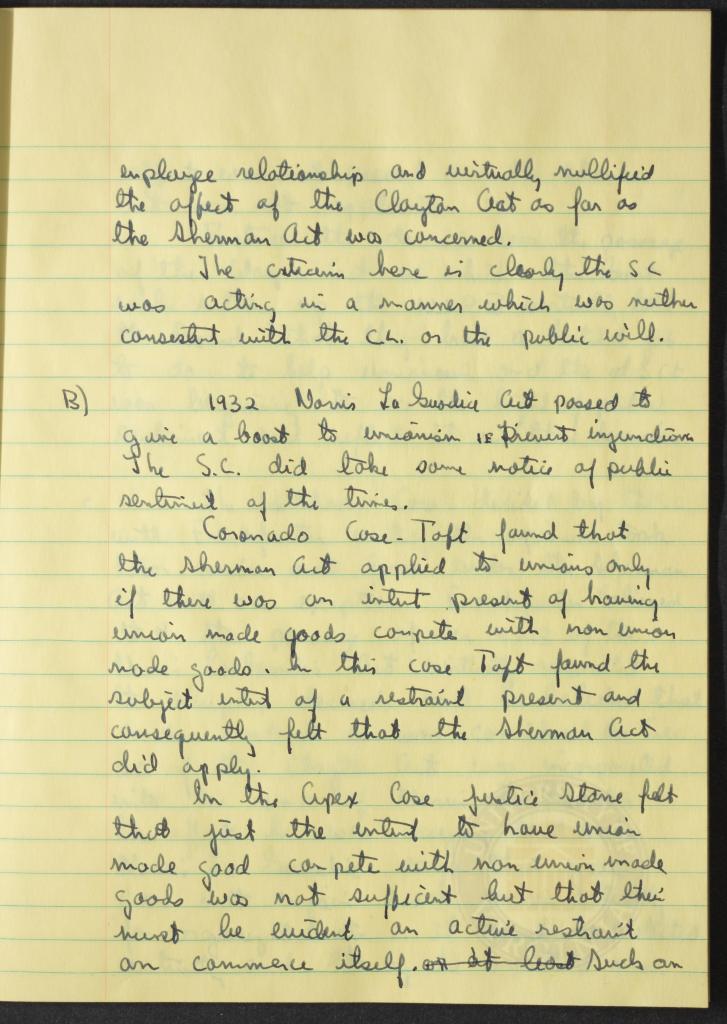 employee relationship and virtually nullified
the affect of the Clayton Act as far as
the Sherman Act was concerned.
The criticism here is clearly the S C
was acting in a manner which was neither
consestent with the C.L. or the public will.
B) 1932 Norris La Guardia Act passed to
give a boost to unionism IE Prevent injunctions
The S.C. did take some notice of public
sentiment of the times.
Coronado Case - Taft found that
the Sherman Act applied to unions only
if there was an intent present of having
union made goods compete with non union
made goods. In this case Taft found the
subject intent of a restraint present and
consequently felt that the Sherman Act
did apply.
In the Apex Case Justice Stone felt
that just the intent to have union
made good compete with non union made
goods was not sufficent but that their
must be evident an active restraint
on commerce itself. or at least Such an